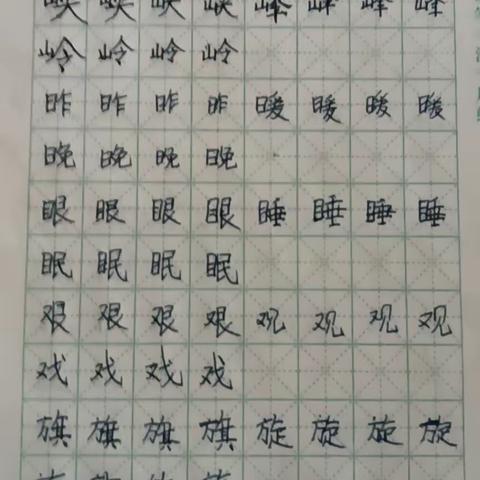 峡峡峡峡峰峰峰峰
岭岭岭岭
昨昨昨昨暖暖暖暖
晚晚晚晚
眼眼眼眼睡睡睡睡
眠眠眠眠
艰艰艰艰观观观观
戏戏戏戏
旗旗旗旗旋旋旋旋